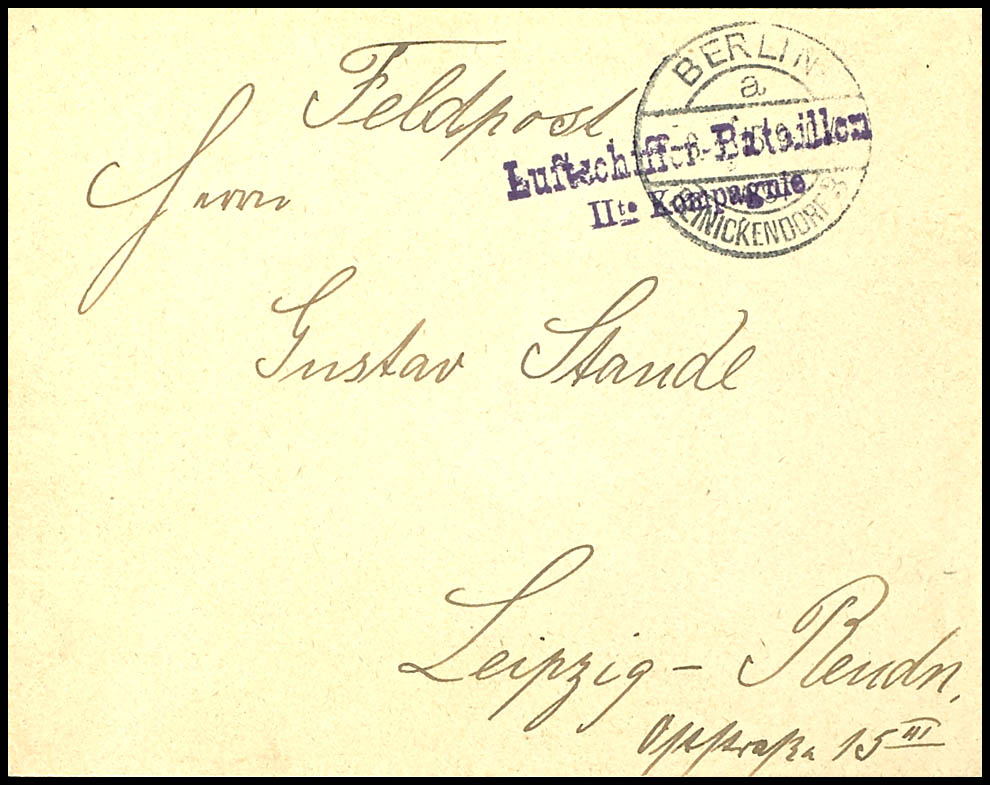 Feldpost
BERLIN
a
Luftschiffer-Bataillon
IIte Kompagnie
REINICKENDORF
Herrn
Gustav Staude
Leipzig - Reudn.
15 III